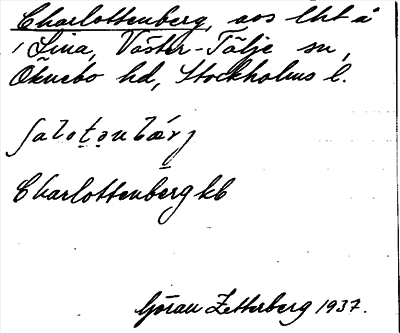 Charlottenberg, avs lht å
1 Lina, Väster-Tälje sn,
Öknebo hd, Stockholms l.
Charlottenberg kb
Göran Zetterberg 1937.